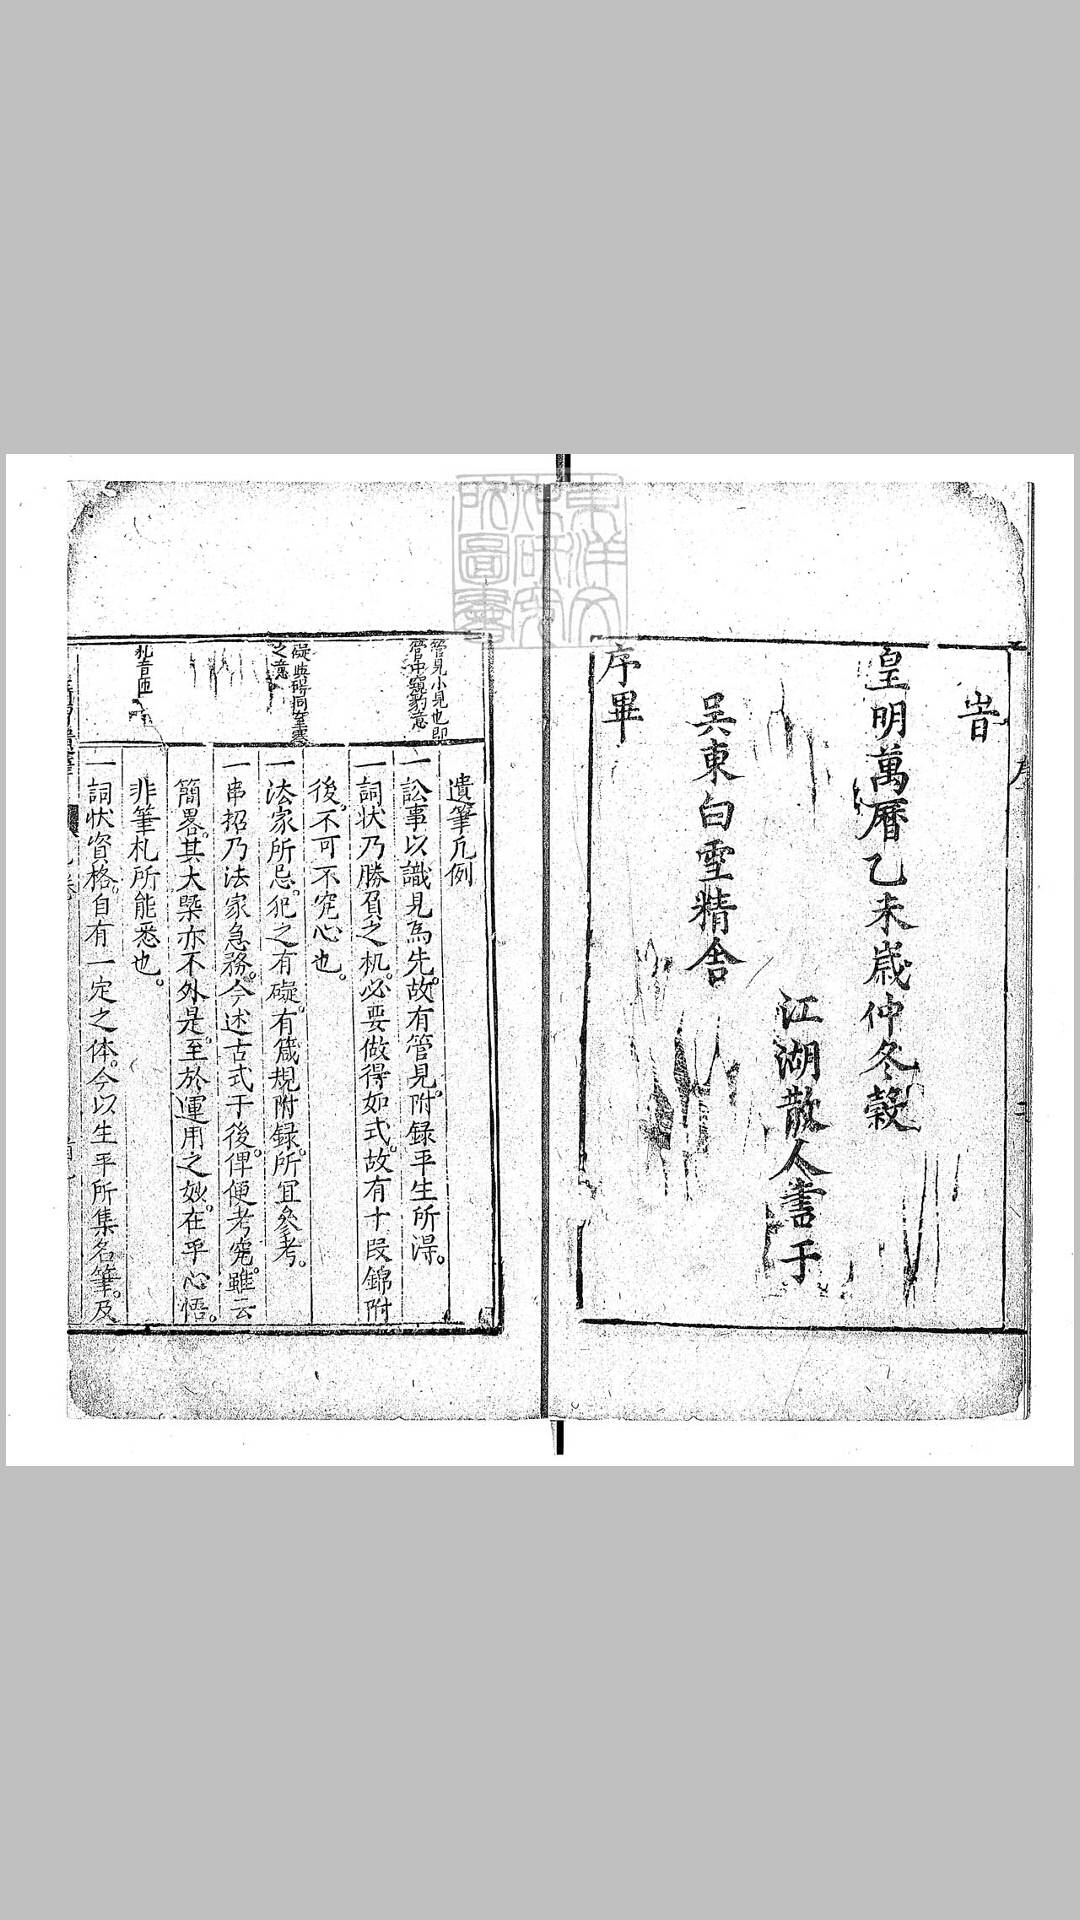 旹
皇明萬曆乙未歲仲冬穀
江湖散人書于
吴東白雪精舍
序畢
管見小見也即
管中窺豹意
礙與碍同至裏
之意
札音匝
遺筆凡例
一訟事以識見為先。故有管見。附録平生所得。
一詞状乃勝負之机。必要做得如式。故有十段錦附
後。不可不究心也。
一法家所忌。犯之有礙。有箴規附録。所宜參考。
一串招乃法家急務。今述古式于後。俾便考究。雖云
簡畧。其大槩亦不外是。至於運用之妙。在乎心悟。
非筆札所能悉也。
一詞状資格。自有一定之体。今以生平所集名筆。及